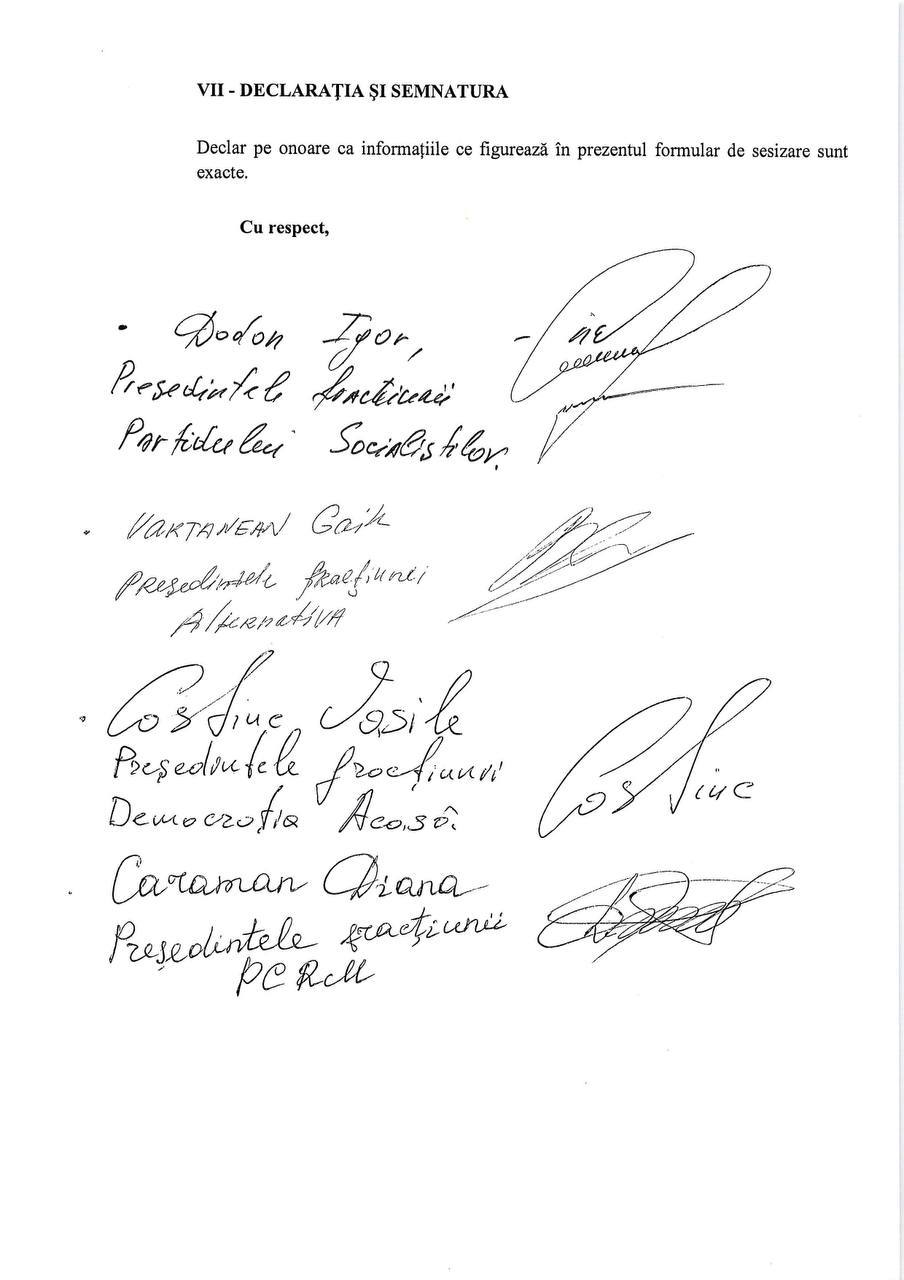 VII - DECLARAŢIA ŞI SEMNATURA
Declar pe onoare ca informațiile ce figurează în prezentul formular de sesizare sunt
exacte.
Cu respect,
• Dodon Igor, -
Președintele fracțiunii
Partidului Socialistilor.
• VARTANEAN Gaik
Președintele fracțiunei
AlternativA
• Costiuc Vasile
Președintele fracțiunii
Democrația Acasă.
Costiuc
• Caraman Diana
Președintele fracțiunii
PCRM